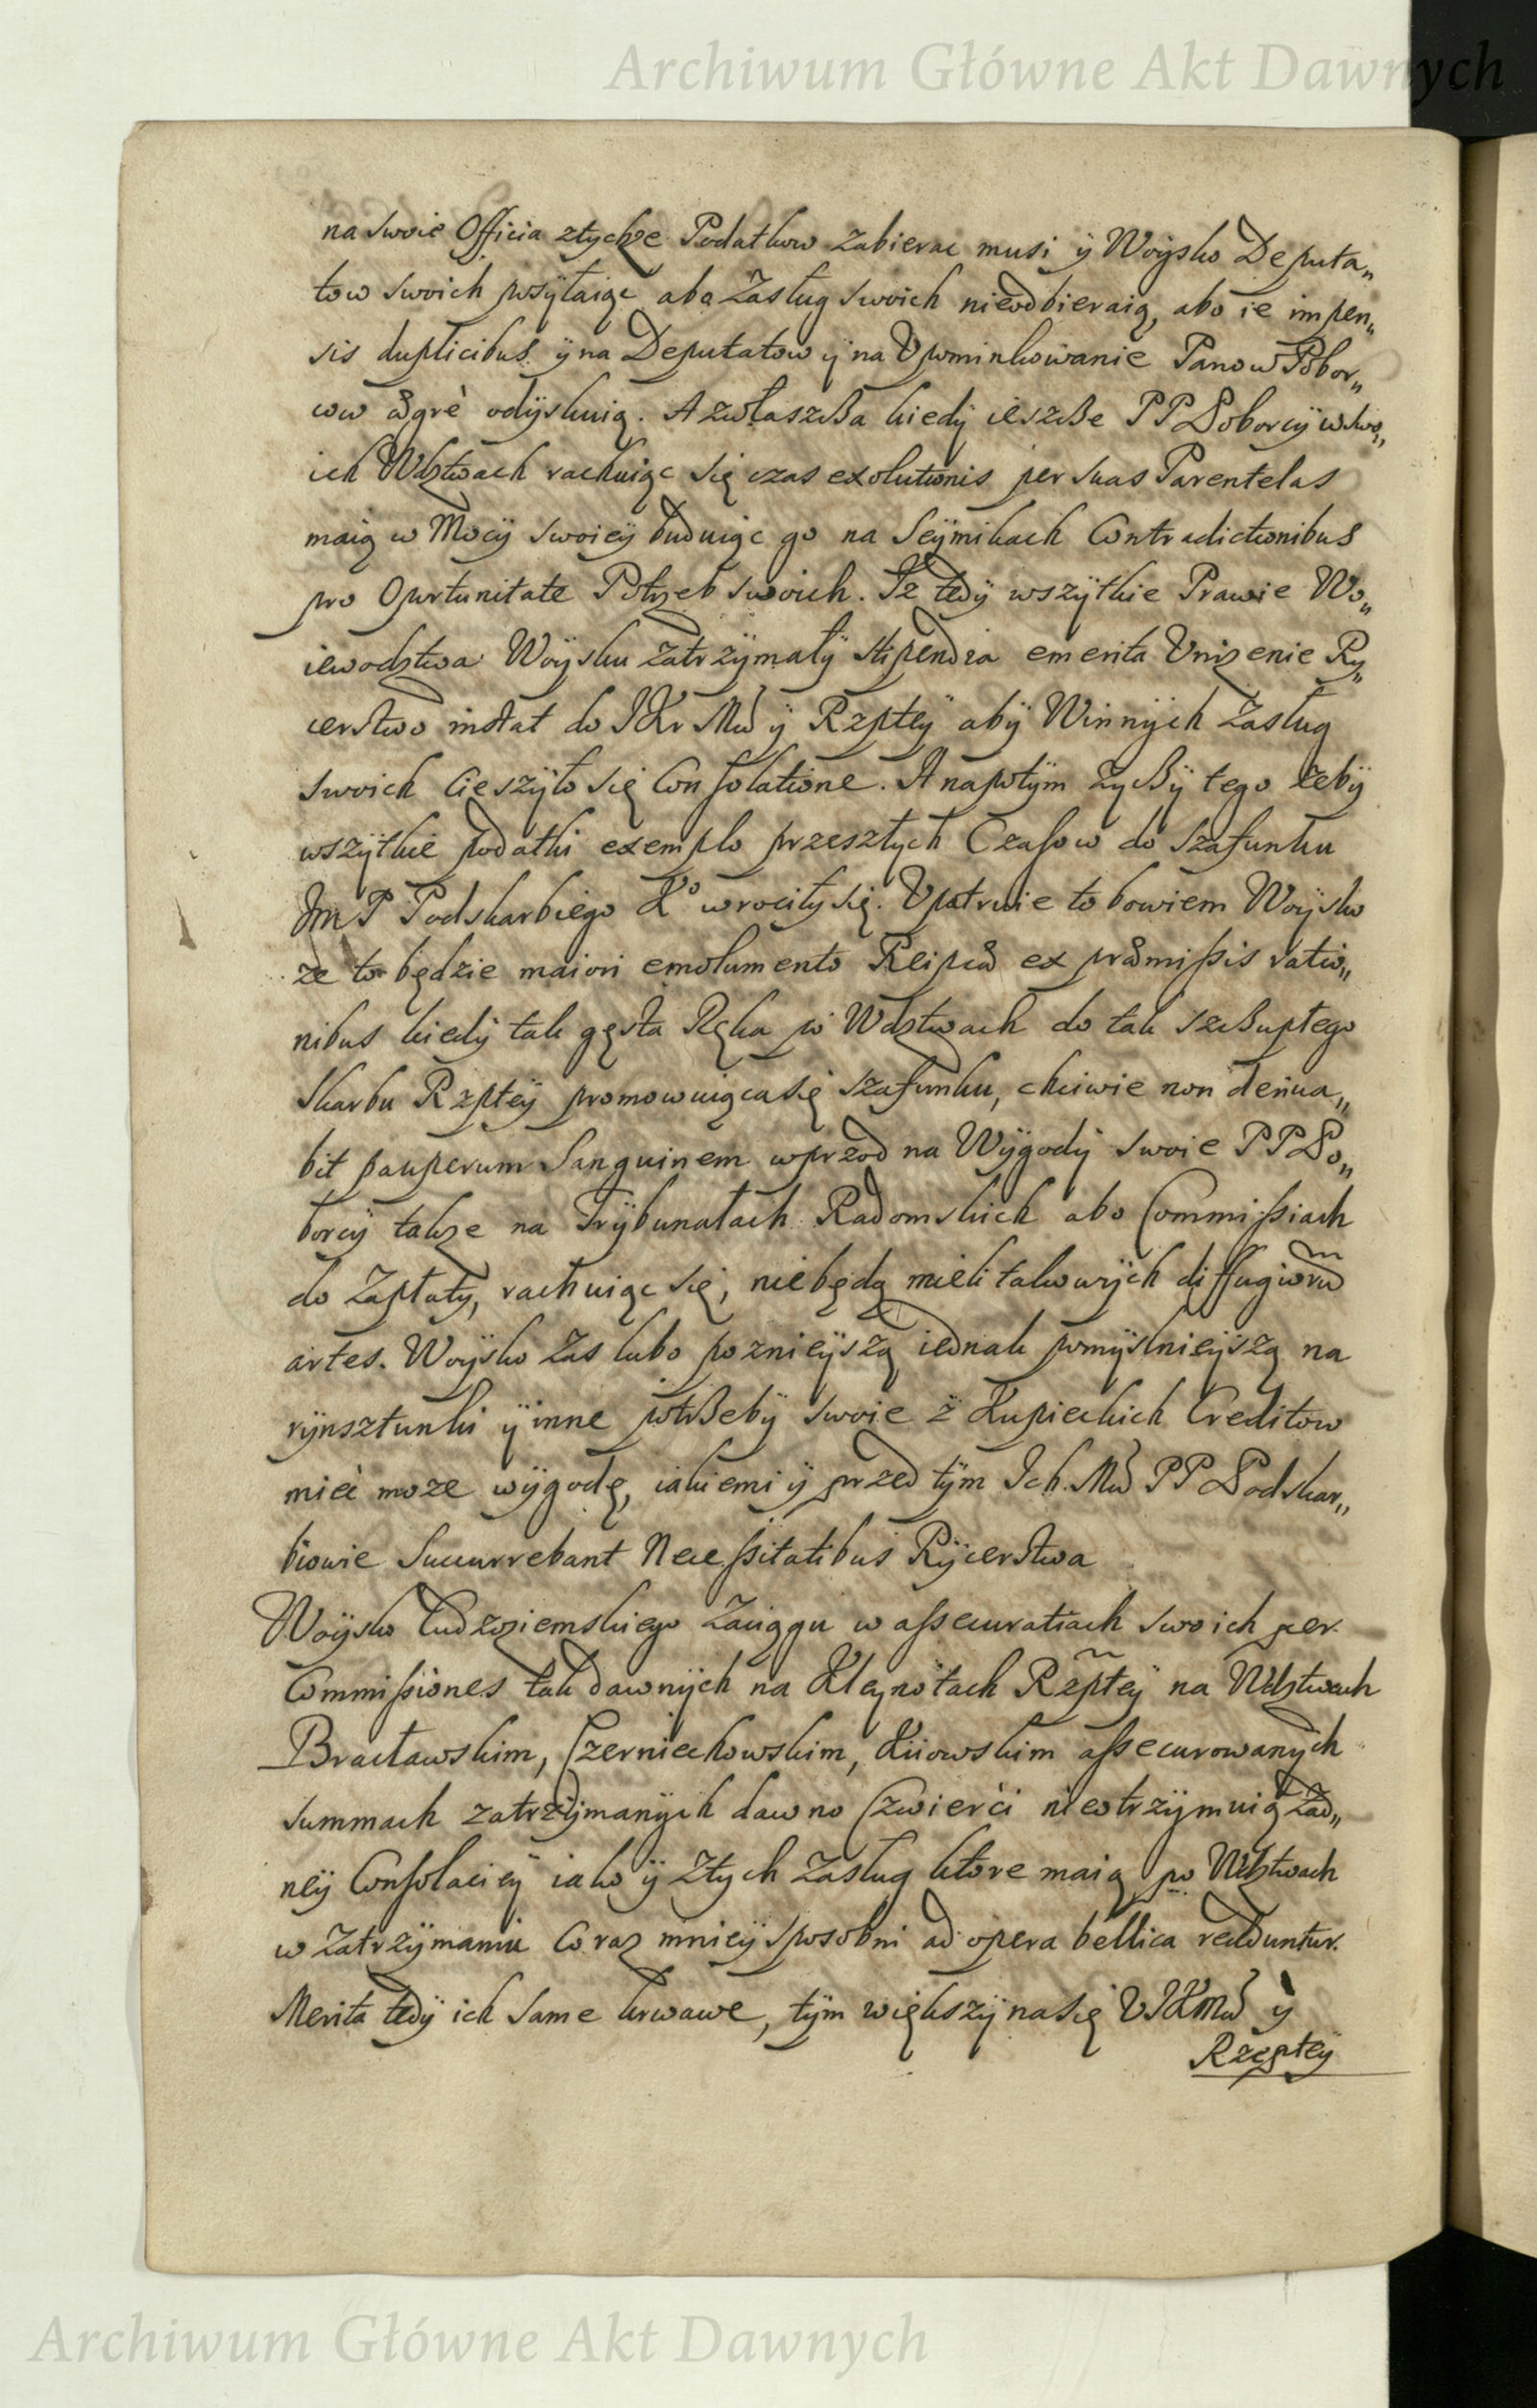 Archiwum Główne Akt Dawnych
na swoie Officia ztychże Podatkow zabierac musi ÿ Woÿsko Deputa„
tow swoich posÿłaiąc abo Zasług swoich nieodbieraią, abo ie impen„
sis duplicibus ÿ na Deputatow ÿ na Vpominkowanie Panow Pobor„
cow ægrè odÿskuią. A zwłaszcza kiedÿ ieszcze PP Poborcÿ w swo„
ich Wdztwach rachuiąc się czas exolutionis per suas Parentelas
maią w Mocÿ swoieÿ buduiąc go na Seÿmikach Contradictionibus
pro Oportunitate Potrzeb swoich. Iz tedÿ wszÿtkie Prawie Wo„
iewodztwa Woÿsku zatrzÿmałÿ stipendia emerita Vnizenie Rÿ„
cerstwo instat do JKr Mci ÿ Rzptey abÿ Winnÿch Zasług
swoich Cieszÿło się Consolatione. A napotÿm zÿczÿ tego zebÿ
wszÿtkie podatki exemplo przeszłych Czasow do szafunku
Jm P Podskarbiego Ko wrociłÿ się. Vpatruie to bowiem Woÿsko
ze to będzie maiori emolumento Reipcæ ex præmissis ratio„
nibus kiedÿ tak gęsta Ręka po Wdztwach do tak szczupłego
Skarbu Rzpteÿ promowuiąca się szafunku, chciwie non deriua„
bit pauperum Sanguinem wprzod na Wÿgodÿ swoie PP Po„
borcÿ takze na Trÿbunałach Radomskich abo Commissiach
do Zapłatÿ, rachuiąc się, niebędą mieli takowÿch diffugiorũ
artes. Woÿsko zas lubo poznieÿszą iednak pomÿslnieÿszą na
rÿnsztunki ÿ inne potrzebÿ swoie z Kupieckich Creditow
mieć moze wÿgodę, iakiemi ÿ przed tÿm Ich Mć PP Podskar„
biowie Succurrebant Necessitatibus Rÿcerstwa
Woÿsko Cudzoziemskiego Zaciągu w assecuratiach swoich per
Commissiones tak dawnÿch na Kleynotach Rzptey na Wdztwach
Bracławskim, Czerniechowskim, Kiiowskim assecurowanÿch
summach zatrzÿmanÿch dawno Czwierći nieotrzÿmuią zad„
neÿ Consolacieÿ iako ÿ ztÿch zasług ktore maią po Wdztwach
w zatrzÿmaniu Coraz mnieÿ sposobni ad opera bellica redduntur.
Merita tedÿ ich same krwawe, tÿm większÿ na się V JKMci ÿ
Rzeptey
Archiwum Główne Akt Dawnych